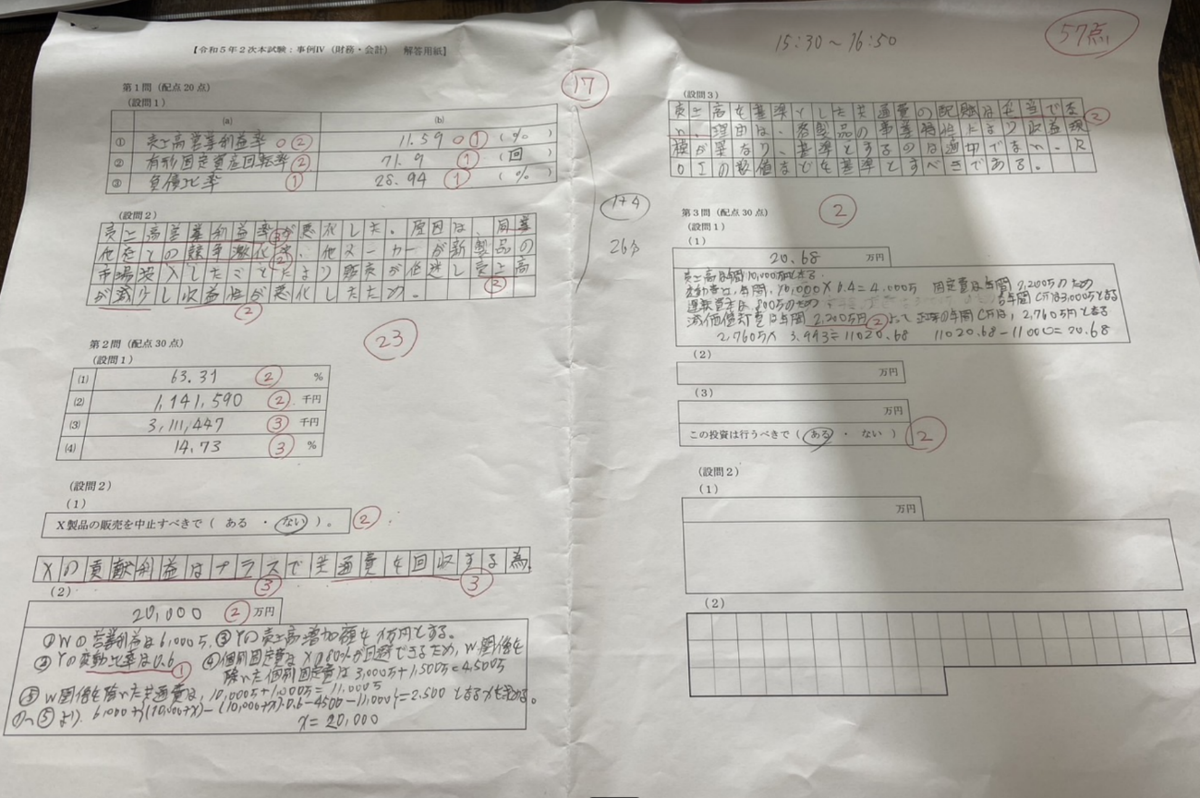 【令和5年2次本試験：事例Ⅳ（財務・会計） 解答用紙】
15:30～16:50
57点
第1問（配点20点）
17
（設問1）
(a) (b)
① 売上高営業利益率 ② 11.59 ① (%)
② 有形固定資産回転率 ② 71.9 ① (回)
③ 負債比率 ① 28.94 ① (%)
（設問2）
売上高営業利益率が悪化した。原因は、同業
他社との競争激化や、他メーカーが新製品の
市場投入したことにより販売が低迷し売上高
が減少し収益性が悪化したため。
②
第2問（配点30点）
23
（設問1）
(1) 63.31 ② %
(2) 1,141,590 ② 千円
(3) 3,111,447 ③ 千円
(4) 14.73 ③ %
（設問2）
（1）
X製品の販売を中止すべきで（ ある ・ ない ）。 ②
Xの貢献利益はプラスで共通費を回収する為
③ ③
（2）
20,000 ② 万円
①Wの営業利益は6,000万 ③Yの売上高増加額をX万円とする。
②Yの変動比率は0.6 ① ④個別固定費はXの50%が回避できるため、W関係を
除いた個別固定費は3,000万+1,500万=4,500万
⑤W関係を除いた共通費は、10,000万+1,000万=11,000万
①～⑤より、6,000+{(10,000+x)-(10,000+x)・0.6-4500-11,000}=2,500 となるxを求める。
x=20,000
（設問3）
売上高を基準とした共通費の配賦は妥当でな
い。理由は、各製品の事業特性により収益規
模が異なり、基準とするのは適切でない。R
OIの数値などを基準とすべきである。
②
1+4
26分
第3問（配点30点）
②
（設問1）
（1）
20.68 万円
売上高は年間10,000万円である
変動費は、年間、10,000×0.4=4,000万 固定費は年間2,200万のため
運転資本は、800万のため 各年間CFは3,000万となる
減価償却費は年間2,200万円 ② よって 年間CFは、2,760万円となる
2,760万×3.993=11020.68 11020.68-11000=20.68
（2）
万円
（3）
万円
この投資は行うべきで（ ある ・ ない ） ②
（設問2）
（1）
万円
（2）